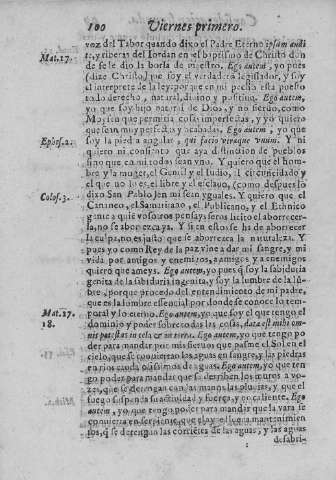 100 Viernes primero.
Mat.17. voz del Tabor quando dixo el Padre Eterno ipsum audi
te, y riberas del Iordan en el baptismo de Christo don
de se le dio la borla de maestro. Ego autem, yo pues
(dize Christo) que soy el verdadero legislador, y soy
el interprete de la ley: porque en mi pecho esta puesto
todo derecho, natural, diuino y positiuo. Ego autem,
yo que soy hijo natural de Dios, y no sieruo, como
Moysen que permitia cosas imperfectas, y yo quiero
que sean muy perfectas y acabadas. Ego autem, yo que
Ephes.2. soy la piedra angular, qui facio vtraque vnum. Y ni
quiero ni consiento que aya distincion de pueblos
sino que en mi todos sean vno. Y quiero que el hom-
bre y la muger, el Gentil y el Iudio, el circuncidado y
el que no lo es, el libre y el esclauo, (como despues lo
Colos.3. dixo San Pablo) en mi sean yguales. Y quiero que el
Cananeo, el Samaritano, el Publicano, y el Ethnico
a quié vosotros pensays seros licito el aborrecer-
la, no se aborrezca ya. Y si en esto se ha de aborrecer
la culpa, no es justo que se aborrezca la naturaleza. Y
pues yo como Rey de la paz vine a dar mi sangre, y mi
vida por antigos y enemigos, a amigos y a enemigos
quiero que ameys. Ego autem, yo pues q̃ soy la sabiduria
genita de la sabiduria ingenita, y soy la lumbre de la lũ-
bre, porque procedo del entendimiento de mi padre,
que es la lumbre essencial por donde se conoce lo tem-
Mat.17. poral y lo eterno. Ego autem, yo que soy el que tengo el
18. dominio y poder sobre todas las cosas, data est mihi om-
nis potestas in cælo et in terra. Ego autem, yo que tengo po
der para mandar por mis sieruos que pasme el Sol en el
cielo, que se conuiertan los aguas en sangre, y las piedras
en rios caudalosissimos de aguas. Ego autem, yo que ten
go poder para mandar que se derriben los muros a vo-
zes, que se detengan cõ las manos las pluuias, y que el
fuego suspenda su actiuidad y fuerça, y no caliente. Ego
autem, yo que tengo poder para mandar que la vara se
conuierta en serpiente, que el ayre llueua mantenimien
tos, q̃ se detengan las corriẽtes de las aguas, y las aguas
desabri-